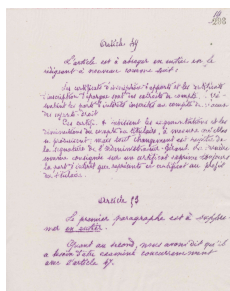 Article 49
L'article est à abroger en entier en le
rédigeant à nouveau comme suit :
Les certificats d'inscription d'apports et les certificats
d'inscription d'épargne sont des extraits de compte.
les parts d'intérêt inscrites au compte de
Ces certif. les augmentations et les
diminutions du compte du titulaire, à mesure qu'elles
se produisent, mais tout changement est revêtu de
la signature de l'Administrateur-Gérant.
somme consignée sur un certificat exprime toujours
la part d'intérêt que représente ce certificat au profit
du titulaire.
Article 53
Le premier paragraphe est à supprimer
en entier.
Quant au second, nous avons dit qu'il
a besoin d'être examiné concurremment
avec l'article 47.